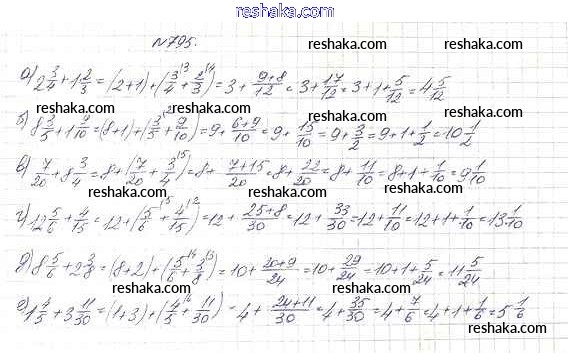 reshaka.com
№795.
reshaka.com reshaka.com
а) 2 3/4 + 1 2/3 = (2+1) + (3/4 + 2/3) = 3 + (9+8)/12 = 3 + 17/12 = 3 + 1 + 5/12 = 4 5/12
reshaka.com reshaka.com
б) 8 3/5 + 1 9/10 = (8+1) + (3/5 + 9/10) = 9 + (6+9)/10 = 9 + 15/10 = 9 + 3/2 = 9 + 1 + 1/2 = 10 1/2
reshaka.com
в) 7/20 + 8 3/4 = 8 + (7/20 + 3/4) = 8 + (7+15)/20 = 8 + 22/20 = 8 + 11/10 = 8 + 1 + 1/10 = 9 1/10
reshaka.com reshaka.com
г) 12 5/6 + 4/15 = 12 + (5/6 + 4/15) = 12 + (25+8)/30 = 12 + 33/30 = 12 + 11/10 = 12 + 1 + 1/10 = 13 1/10
reshaka.com reshaka.com
д) 8 5/6 + 2 3/8 = (8+2) + (5/6 + 3/8) = 10 + (20+9)/24 = 10 + 29/24 = 10 + 1 + 5/24 = 11 5/24
reshaka.com reshaka.com
е) 1 4/5 + 3 11/30 = (1+3) + (4/5 + 11/30) = 4 + (24+11)/30 = 4 + 35/30 = 4 + 7/6 = 4 + 1 + 1/6 = 5 1/6
reshaka.com reshaka.com